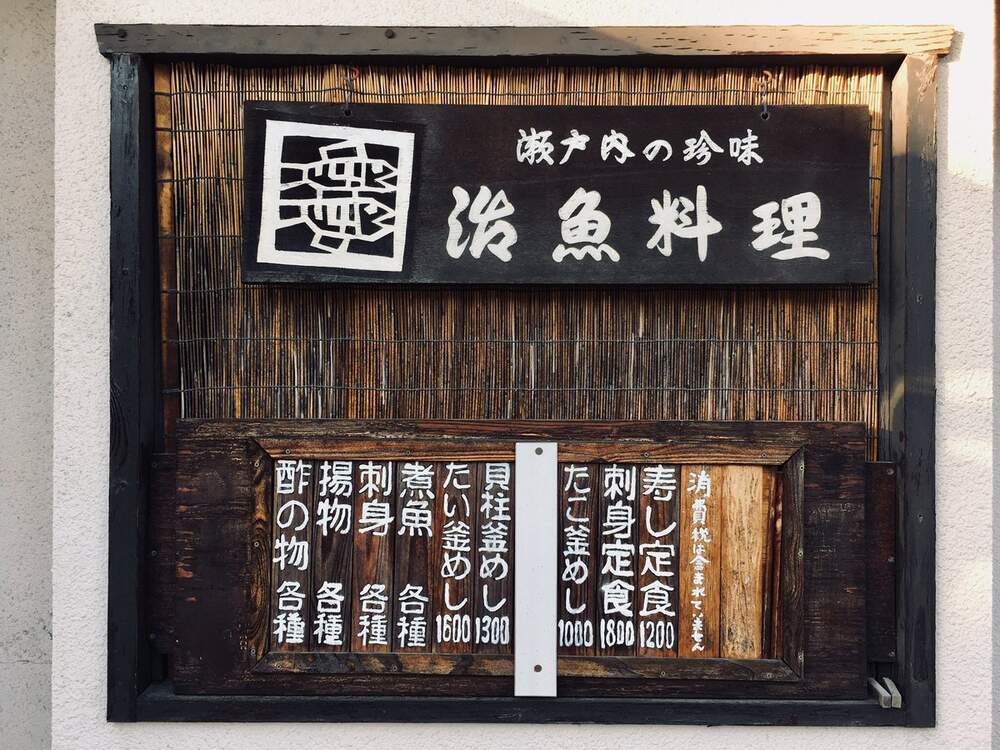 瀬戸内の珍味
活魚料理
消費税は含まれていません
寿し定食1200
刺身定食1800
たこ釜めし1000
貝柱釜めし1300
たい釜めし1600
煮魚 各種
刺身 各種
揚物 各種
酢の物 各種